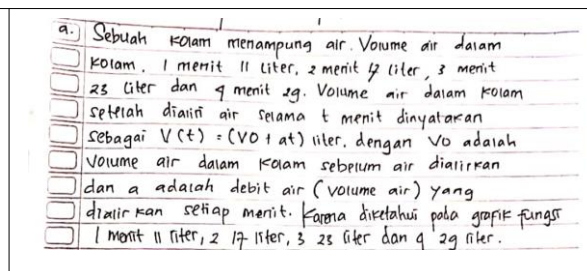 a. Sebuah kolam menampung air. Volume air dalam
kolam. 1 menit 11 liter, 2 menit 17 liter, 3 menit
23 liter dan 4 menit 29. Volume air dalam kolam
setelah dialiri air selama t menit dinyatakan
sebagai V(t) = (V0 + at) liter, dengan V0 adalah
volume air dalam kolam sebelum air dialirkan
dan a adalah debit air (volume air) yang
dialirkan setiap menit. Karena diketahui pada grafik fungsi
1 menit 11 liter, 2 17 liter, 3 23 liter dan 4 29 liter.